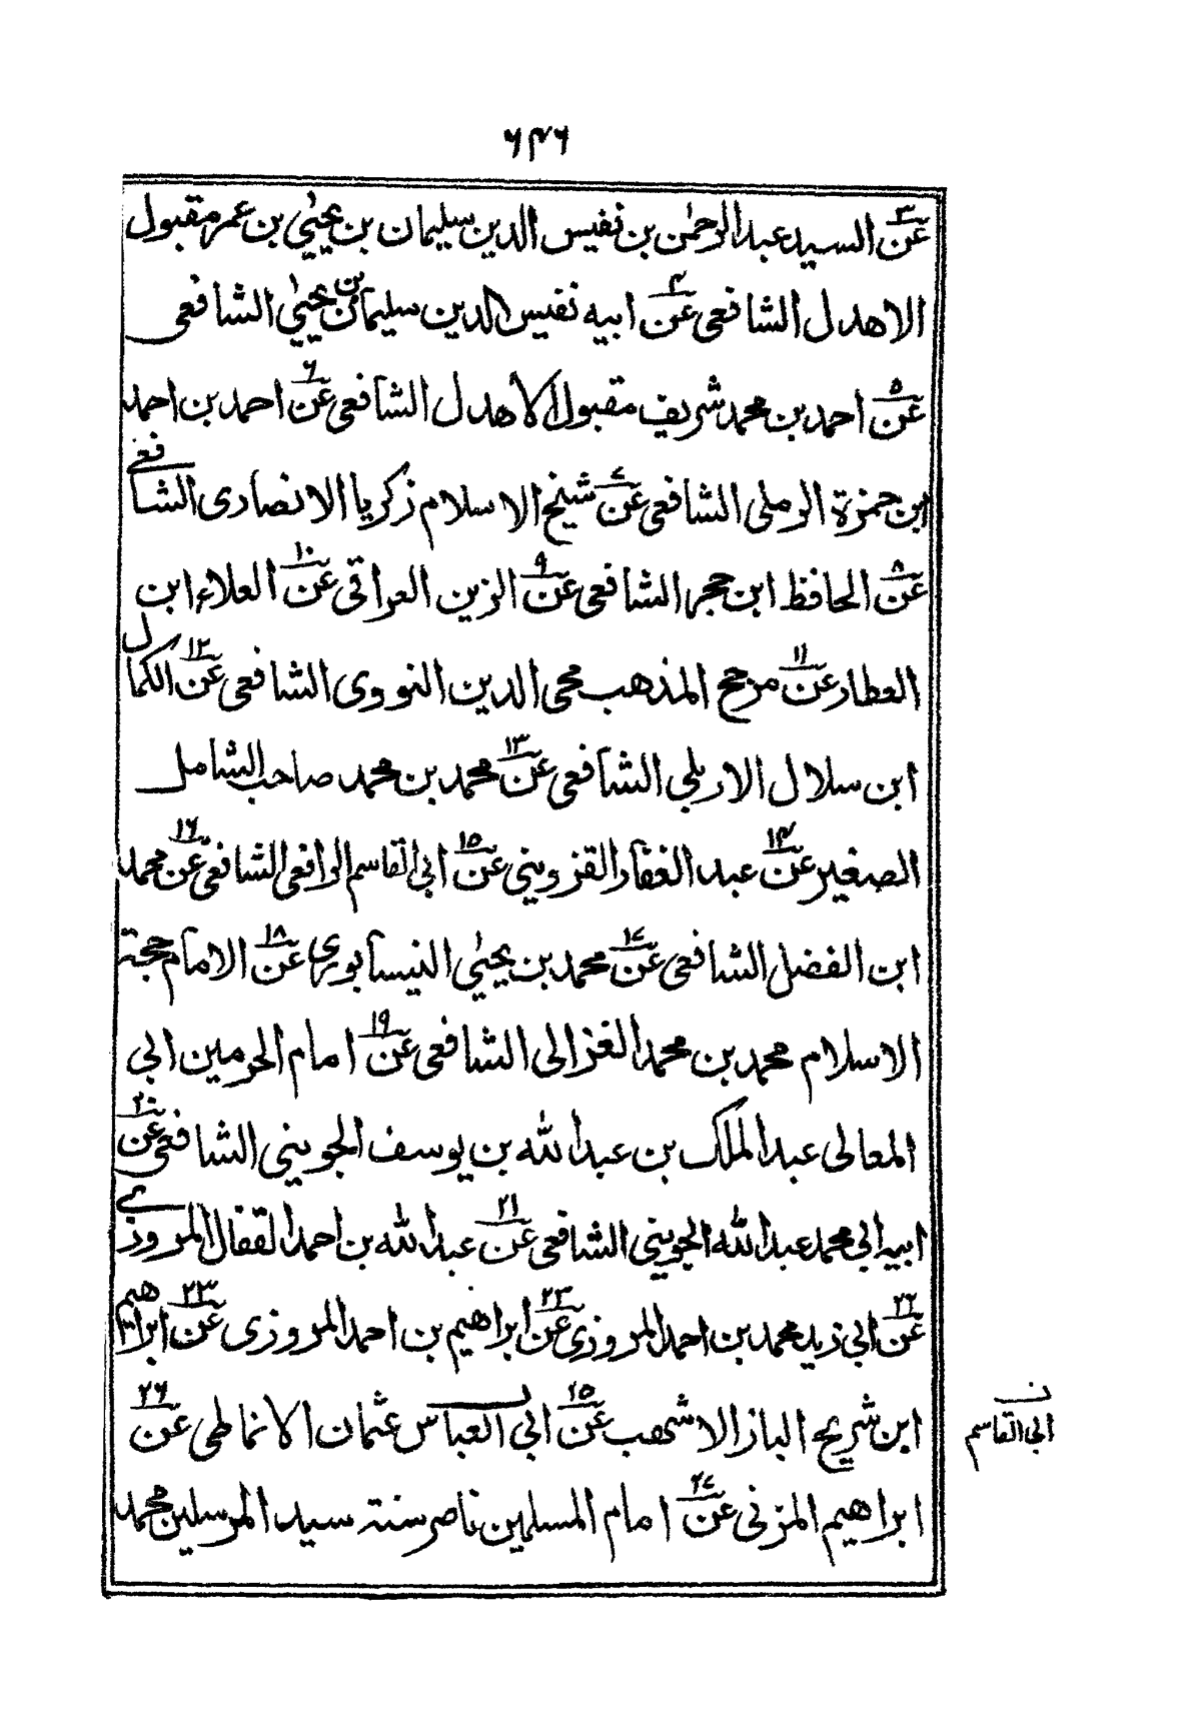 ٦٤٦
عن٣ السيد عبد الرحمٰن بن نفيس الدين سليمان بن يحيٰي بن عمر مقبول
الاهدل الشافعى عن٤ ابيه نفيس الدين سليمان بن يحيٰي الشافعى
عن٥ احمد بن محمد شريف مقبول الاهدل الشافعى عن٦ احمد بن احمد
ابن حمزة الرملى الشافعى عن٧ شيخ الاسلام زكريا الانصارى الشافعے
عن٨ الحافظ ابن حجر الشافعى عن٩ الزين العراقى عن١٠ العلاء ابن
العطار عن١١ مرجح المذهب محى الدين النووى الشافعى عن١٢ الكمال
ابن سلال الاربلى الشافعى عن١٣ محمد بن محمد صاحب الشامل
الصغير عن١٤ عبد الغفار القزوينى عن١٥ ابى القاسم الرافعى الشافعى عن١٦ محمد
ابن الفضل الشافعى عن١٧ محمد بن يحيٰي النيسآبورى عن١٨ الامام حجة
الاسلام محمد بن محمد الغزالى الشافعى عن١٩ امام الحرمين ابى
المعالى عبد الملك بن عبد الله بن يوسف الجوينى الشافعى عن٢٠
ابيه ابى محمد عبد الله الجوينى الشافعى عن٢١ عبد الله بن احمد القفال المروزے
عن٢٢ ابى زيد محمد بن احمد المروزى عن٢٣ ابراهيم بن احمد المروزى عن٢٣ ابراهيم
ابن شريح الباز الاشهب عن١٥ ابى العباس عثمان الانماطى عن٢٦
ابراهيم المزنى عن٢٧ امام المسلمين ناصر سنة سيد المرسلين محمد
ن
ابى القاسم